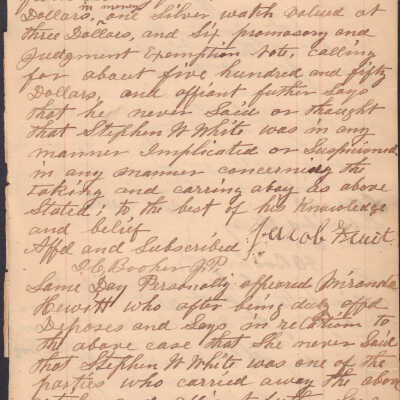 in money
Dollars, one Silver watch valued at
three Dollars, and Six promosory and
Judgment Exemption Note, calling
for about five hundred and fifty
Dollars, and affiant futher Says
that he never Said or thought
that Stephen W White was in any
manner Implicated or Suspicioned
in any manner concerning the
taking and carring away as above
Stated, to the best of his Knowledge
and belief
Affd and Subscribed Jacob Fruit
J C Booker J.P.
Same Day Personally appeared Miranda
Hewitt who after being duly affd
Deposes and Says in relation to
the above case that She never Said
that Stephen W White was one of the
parties who carried away the above